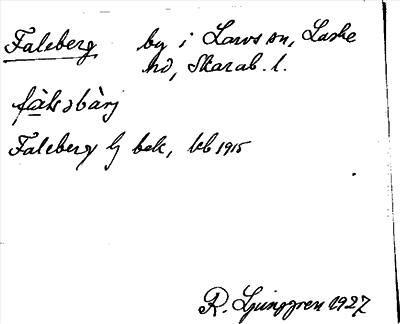 Faleberg by i Larvs sn, Laske
hd, Skarab. l.
fàlsbàrj
Faleberg lj bek, kb 1915
R. Ljunggren 1927